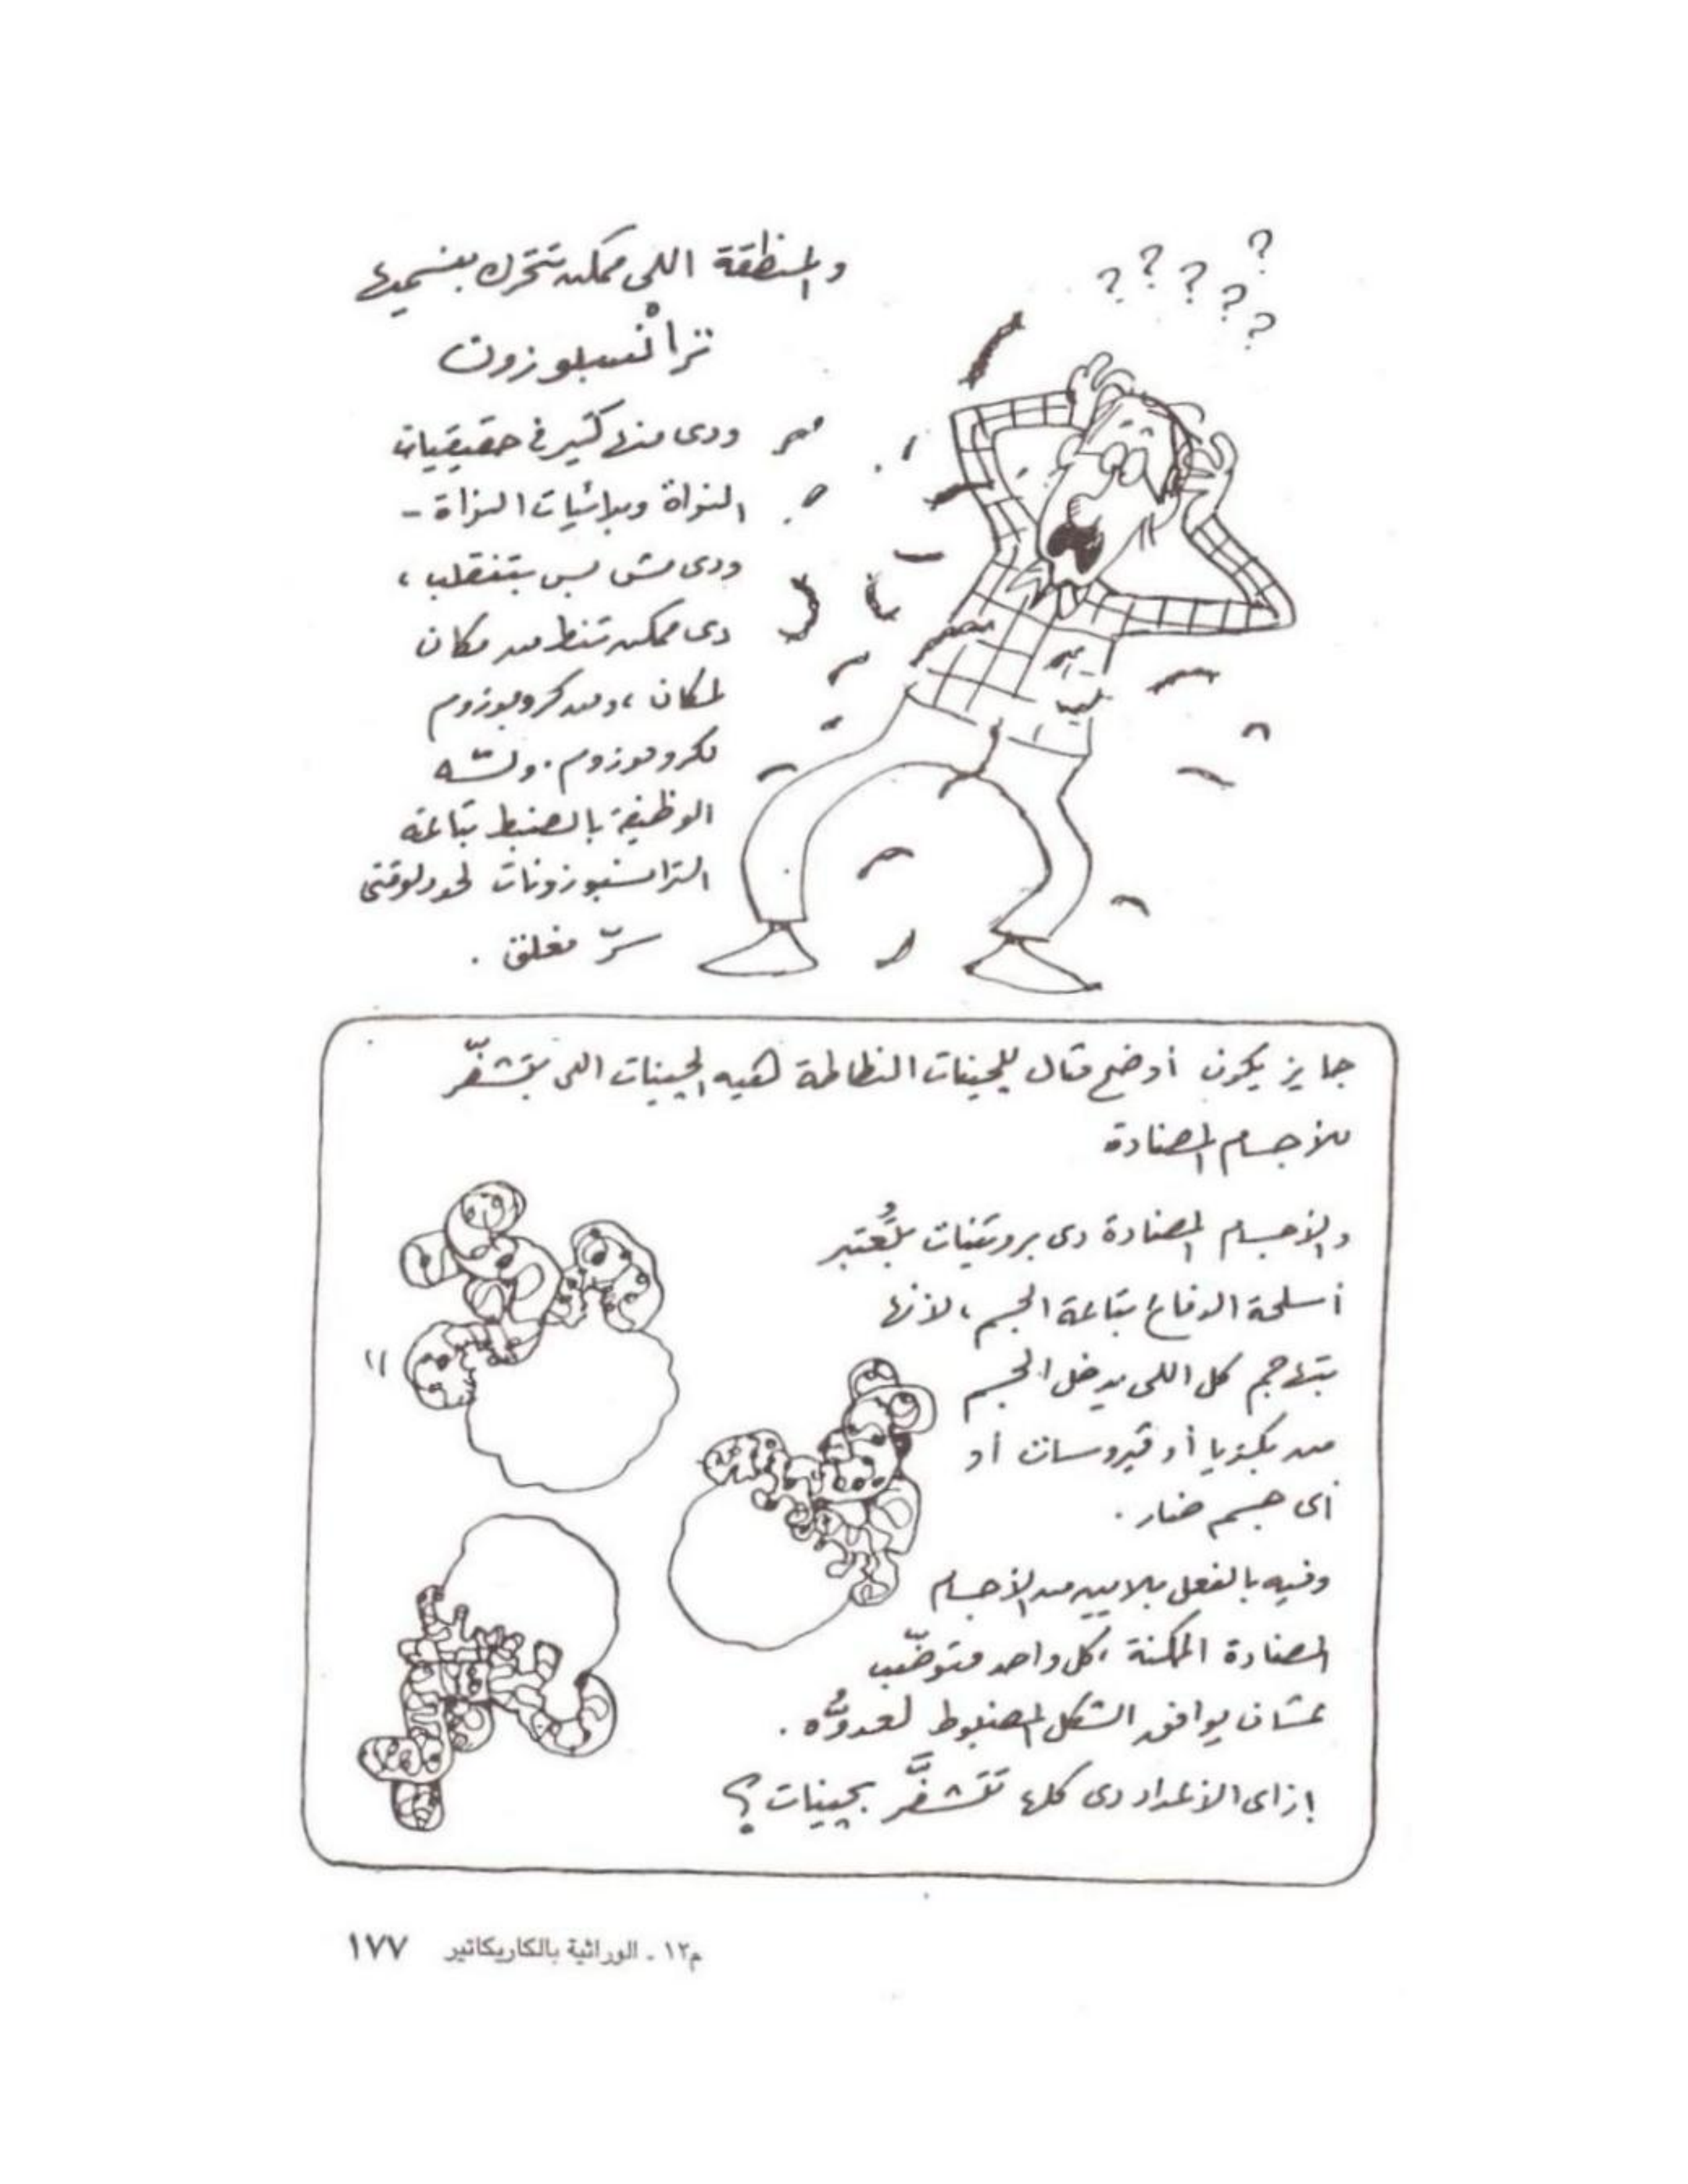 ؟ ؟ ؟ ؟ ؟ ؟
والمنطقة اللى ممكن تتحرك بنسميها
ترانْسبوزون
ودى منها كتير فى حقيقيات
النواة وبدائيات النواة -
ودى مش بس بتنقلب ،
دى ممكن تنط من مكان
لمكان ، ومن كروموزوم
لكروموزوم . ولسّه
الوظيفة بالضبط بتاعة
الترانسبوزونات لحد دلوقتى
سرّ مغلق .
جايز يكون أوضح مثال للچينات النطاطة هيه الچينات اللى بتشفّر
للأجسام المضادة
والأجسام المضادة دى بروتينات بتُعتبر
أسلحة الدفاع بتاعة الجسم ، لأنها
بتهاجم كل اللى يدخل الجسم
من بكتريا أو ڤيروسات أو
أى جسم ضار .
وفيه بالفعل ملايين من الأجسام
المضادة الممكنة ، كل واحد متوضّب
عشان يوافق الشكل المضبوط لعدوُّه .
إزاى الأعداد دى كلها تتشفَّر بچينات ؟
م١٢ ـ الوراثية بالكاريكاتير ١٧٧